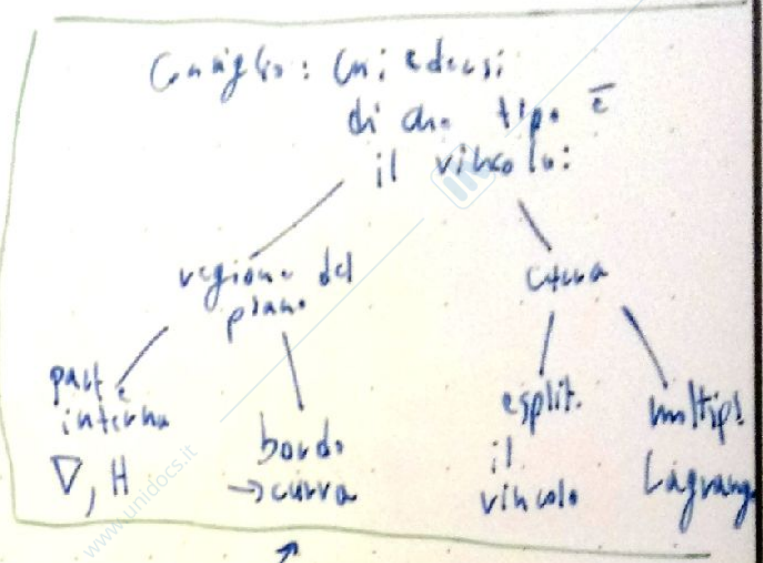 Consiglio: chiedersi
di che tipo è
il vincolo:
regione del
piano
curva
parte
interna
∇, H
bordo
→ curva
esplit.
il
vincolo
multipl.
Lagrang
www.unidocs.it